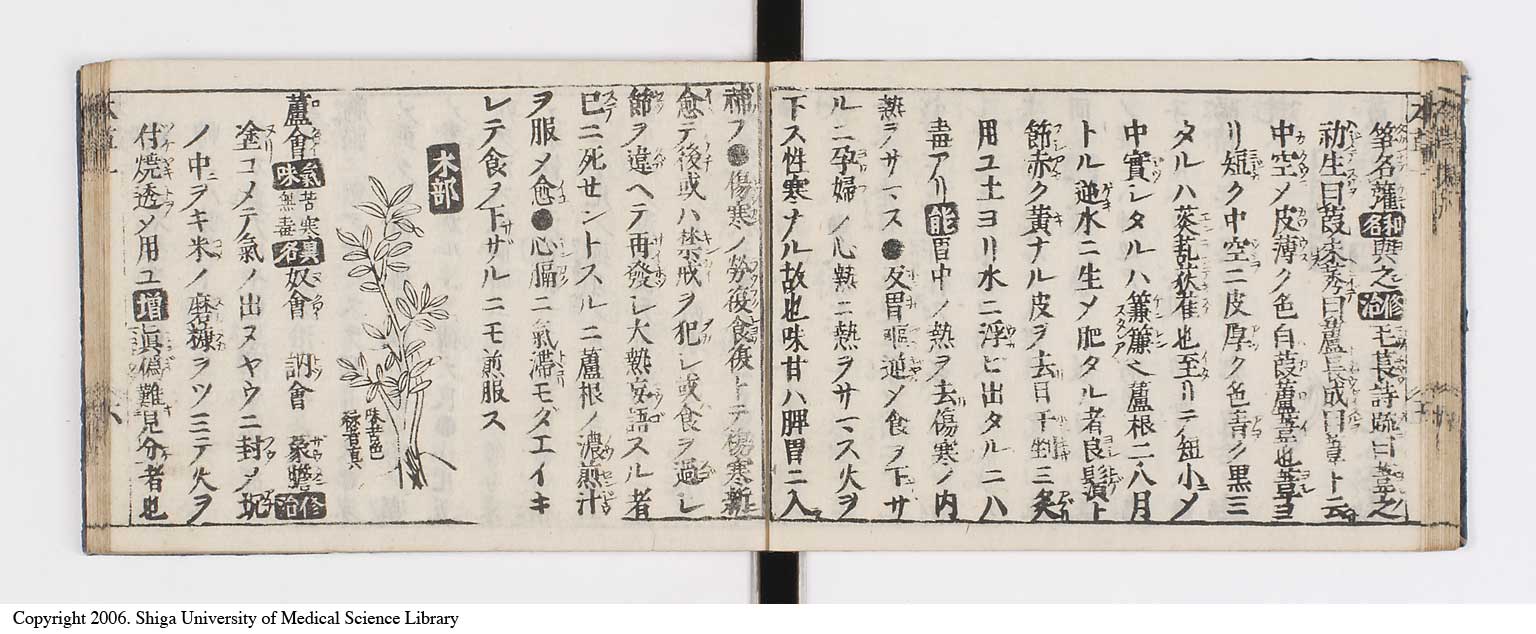 筆名虇和名與之修治毛萇詩疏曰葦之
初生曰葭未秀曰蘆長成曰葦ト云
中空ノ皮薄ク色白葭蘆葦也葦ヨ
リ短ク中空ニ皮厚ク色青ク黒三
タルハ葵薍荻萑也至リテ短小メ
中實シタルハ蒹簾也蘆根二八月
トル逆水ニ生メ肥タル者良鬚ト
節赤ク黄ナル皮ヲ去日干剉三炙
用ユ土ヨリ水ニ浮ヒ出タルニハ
毒アリ能胃中ノ熱ヲ去傷寒ノ内
熱ヲサマス●反胃嘔逆メ食ヲ下サ
ル二孕婦ノ心熱ニ熱ヲサマス火ヲ
下ス性寒ナル故也味甘ハ脾胃ニ入
補フ●傷寒ノ勞復食復トテ傷寒新
愈テ後或ハ禁戒ヲ犯レ或食ヲ過レ
節ヲ違ヘテ再發レ大熱妄語スル者
已ニ死セントスルニ蘆根ノ濃煎汁
ヲ服メ愈●心膈ニ氣滞モダエイキ
レテ食ノ下ザルニモ煎服ス
木部
蘆會氣味苦寒無毒異名奴會 訥會 象膽修治
塗コメテ氣ノ出ヌヤウニ封メ
ノ中ヲキ米ノ磨糠ヲツミテ火ヲ
付燒透メ用ユ増眞僞難見分者也
本草
Copyright 2006. Shiga University of Medical Science Library